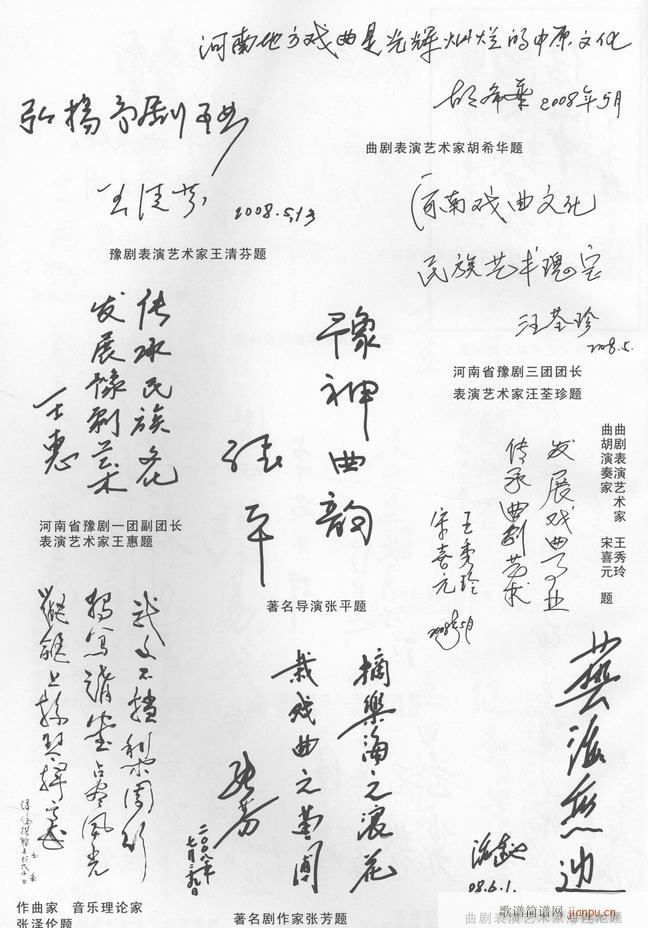 河南地方戏曲是光辉灿烂的中原文化
胡希华 2008年5月
曲剧表演艺术家胡希华题
弘扬予剧
王清芬 2008.5.13
豫剧表演艺术家王清芬题
河南戏曲文化
民族艺术瑰宝
汪荃珍
2008.5.
河南省豫剧三团团长
表演艺术家汪荃珍题
传承民族
发展豫剧艺术
王惠
河南省豫剧一团副团长
表演艺术家王惠题
豫神曲韵
张平
著名导演张平题
发展戏曲事业
传承曲剧艺术
王秀玲
宋喜元
2008年5月
曲剧表演艺术家 王秀玲
曲胡演奏家 宋喜元 题
作曲家 音乐理论家
张泽伦题
摘乐海之浪花
栽戏曲之
张芳
二〇〇八年
七月二十九日
著名剧作家张芳题
艺海无边
08.6.1.
曲剧表演艺术家海连池题
歌谱简谱网
jianpu.cn